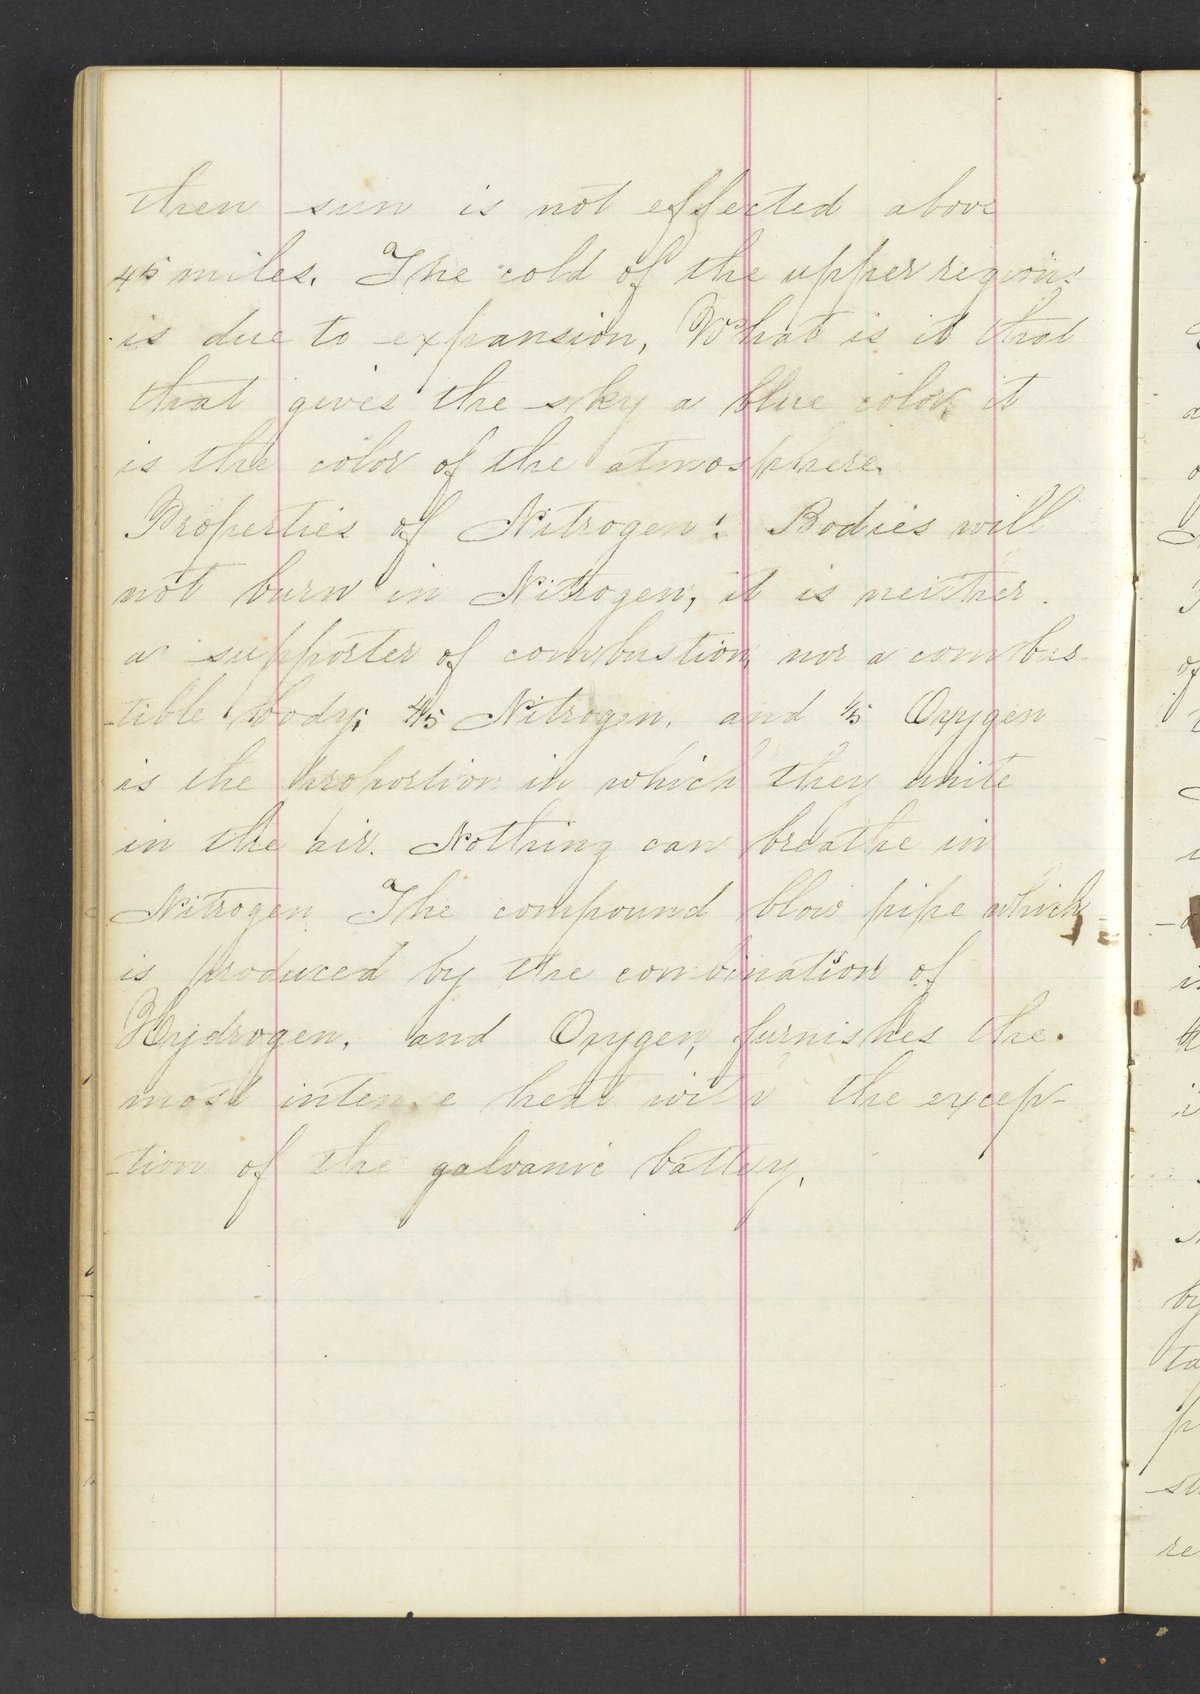 then sun is not effected above
45 miles. The cold of the upper regions
is due to expansion, What is it that
that gives the sky a blue color, it
is the color of the atmosphere.
Properties of Nitrogen: Bodies will
not burn in Nitrogen, it is neither
a supporter of combustion, nor a combus-
tible body; 4/5 Nitrogen, and 1/5 Oxygen
is the proportion in which they unite
in the air. Nothing can breathe in
Nitrogen The compound blow pipe which
is produced by the combination of
Hydrogen, and Oxygen, furnishes the
most intense heat with the excep-
tion of the galvanic battery.